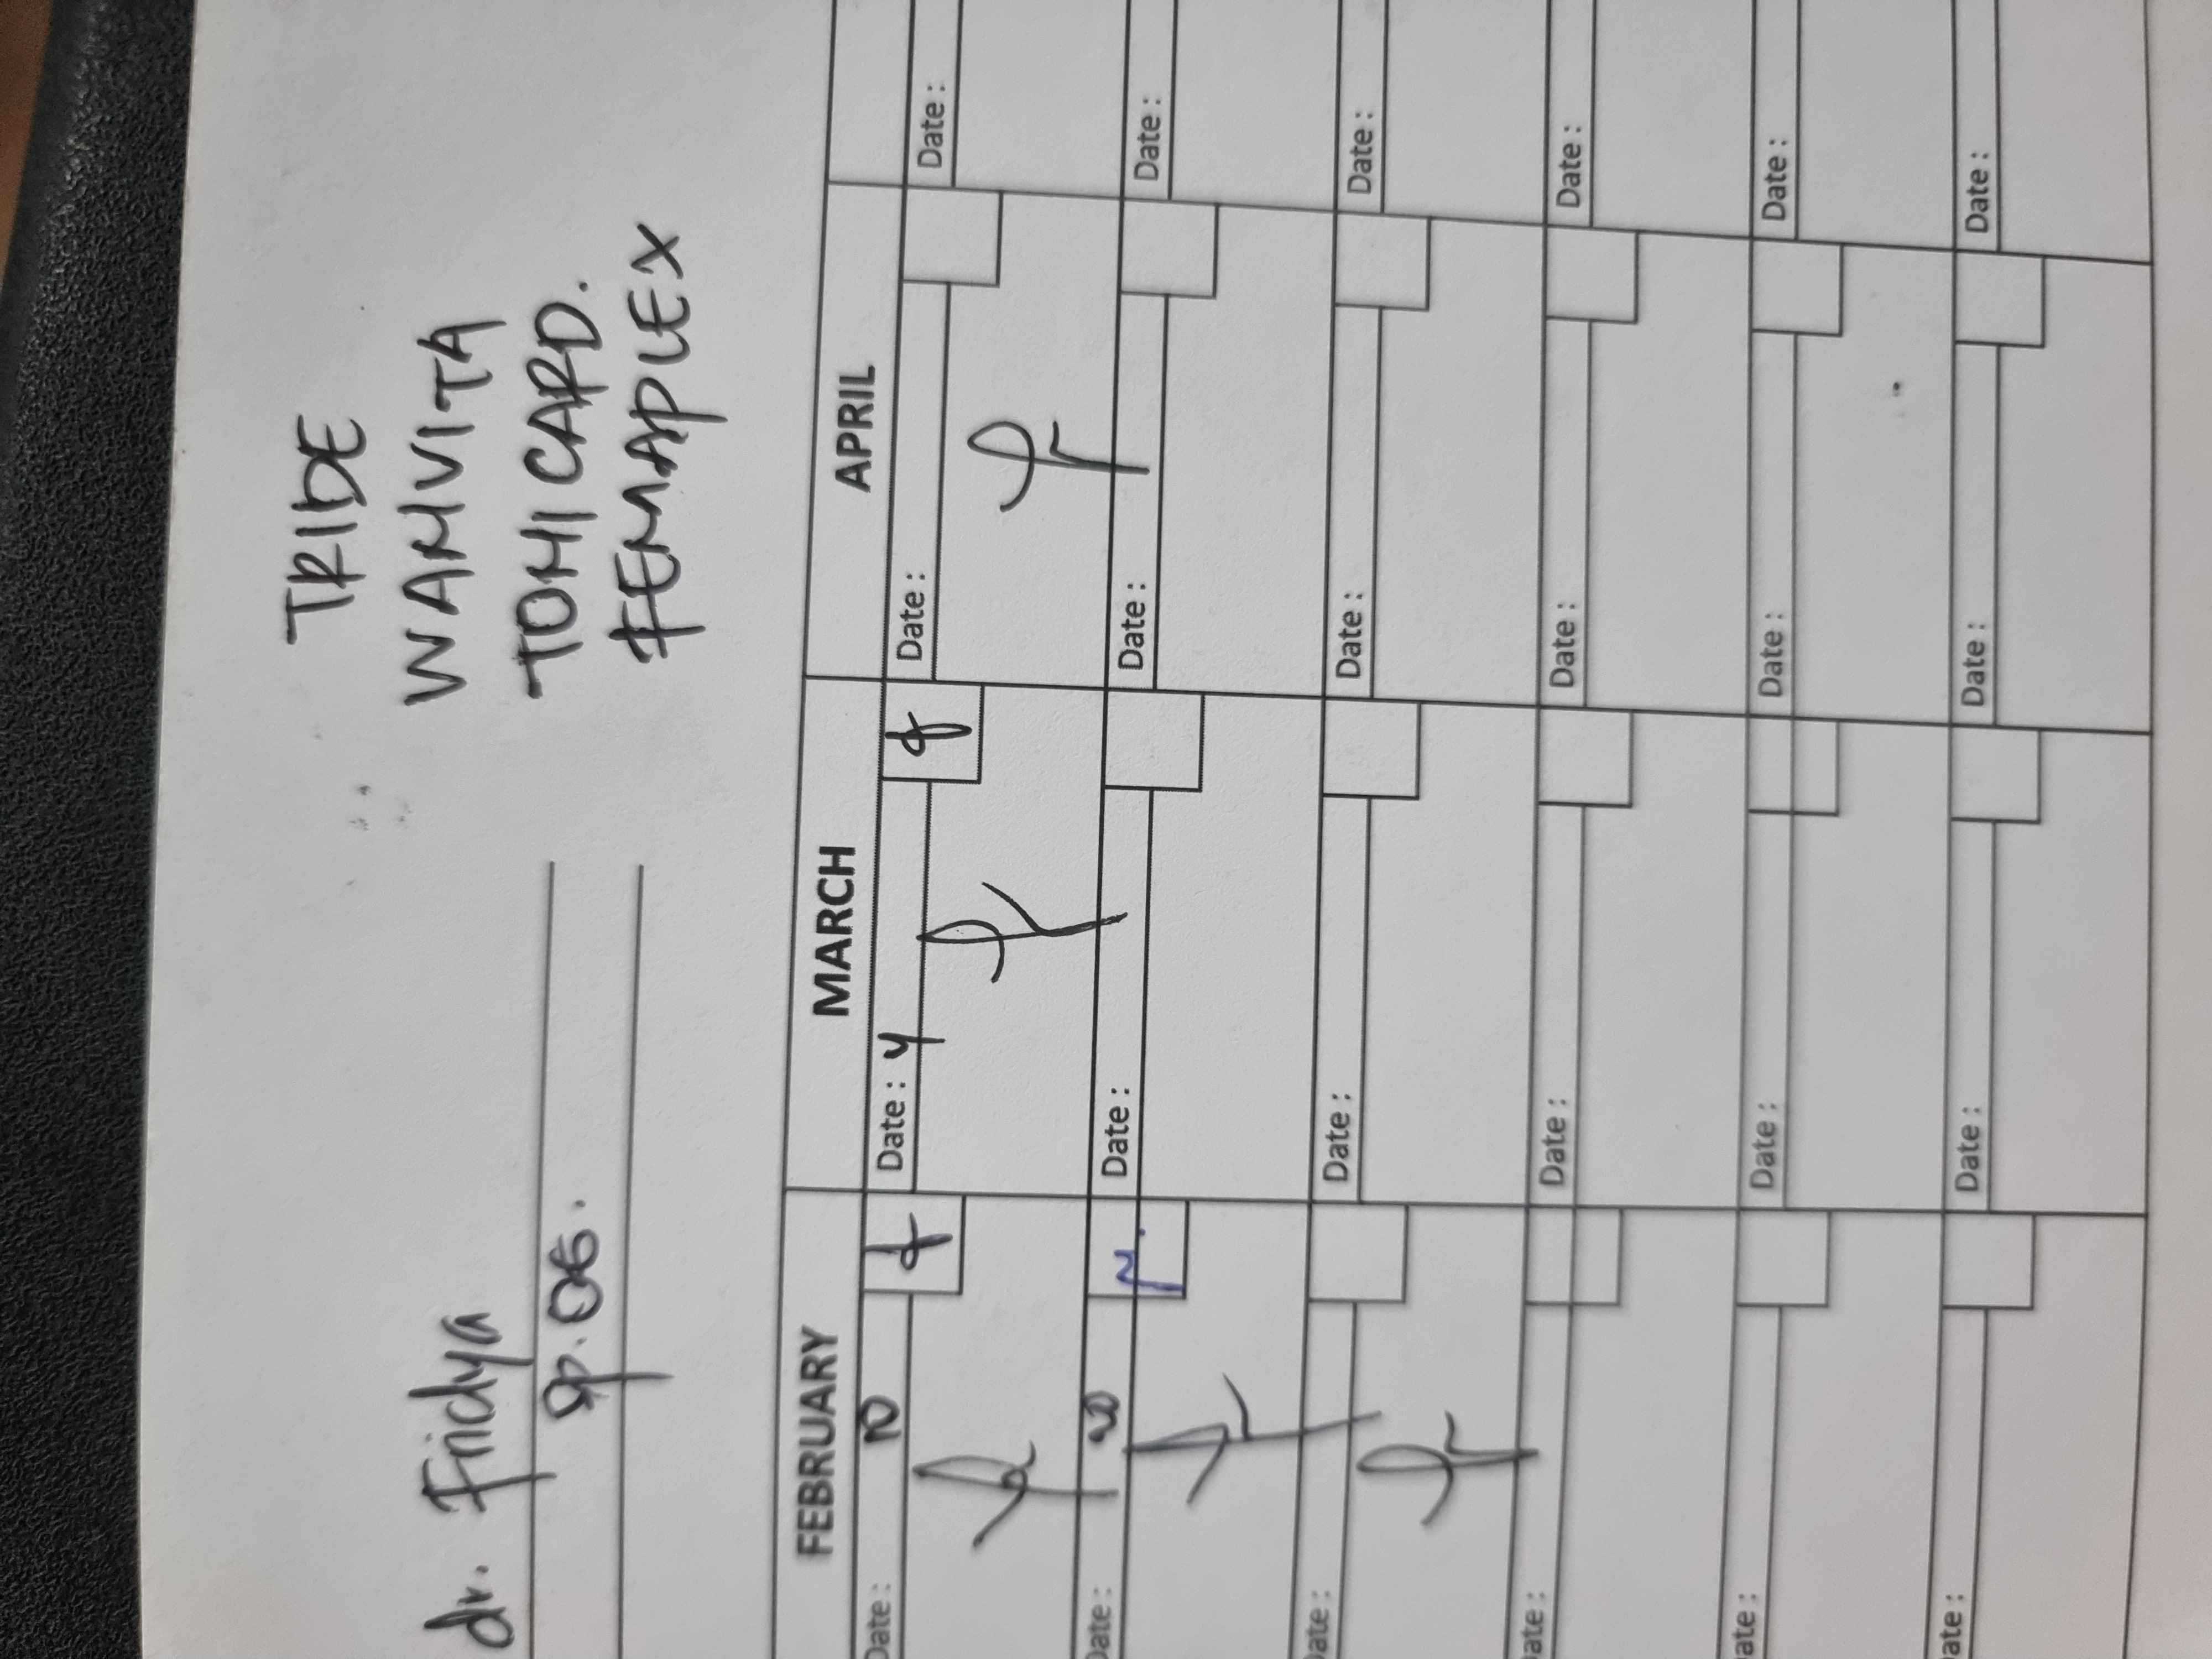 dr. Fridya
Sp. OG.
TRIDE
WANVITA
TONICARD.
FEMAPLEX
FEBRUARY MARCH APRIL
Date : 10 Date : 4 Date : Date :
Date : 20 Date : Date : Date :
Date : Date : Date : Date :
Date : Date : Date : Date :
Date : Date : Date : Date :
Date : Date : Date : Date :